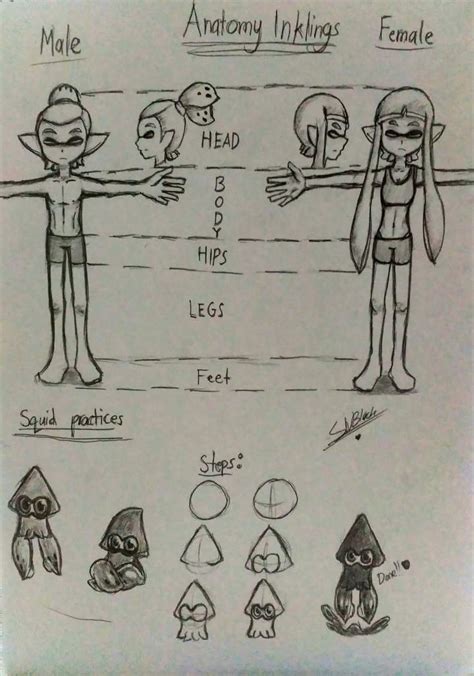 Anatomy Inklings
Male
Female
HEAD
BODY
HIPS
LEGS
Feet
Squid practices
Steps:
Done!!